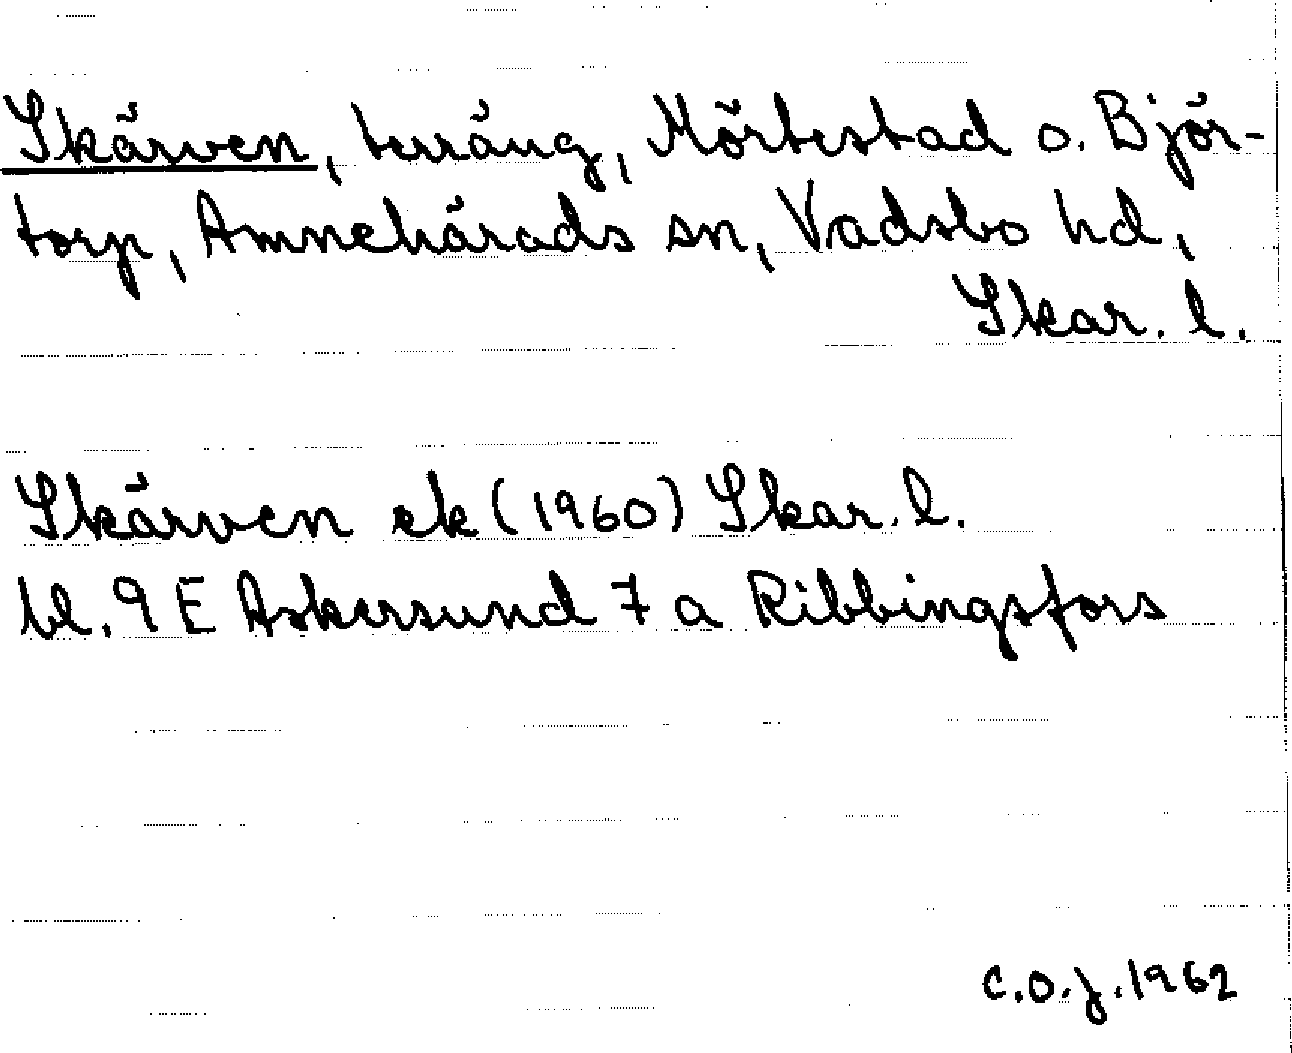 Skärven, terräng, Mörtestad o. Björ-
torp, Amnehärads sn, Vadsbo hd,
Skar. l.
Skärven ek (1960) Skar. l.
bl. 9 E Askersund 7 a Ribbingsfors
C.O.J. 1962